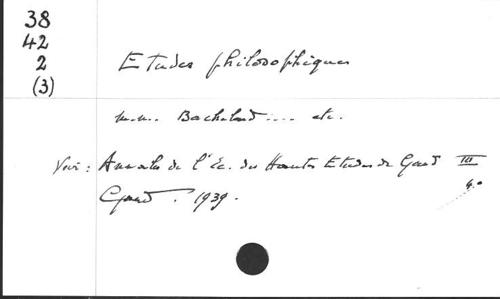 38
42
2
(3)
Etudes philosophiques
m.m. Bachelard .... etc.
Voir : Annales de l'Ec. des Hautes Etudes de Gand III
Gand. 1939. 4°